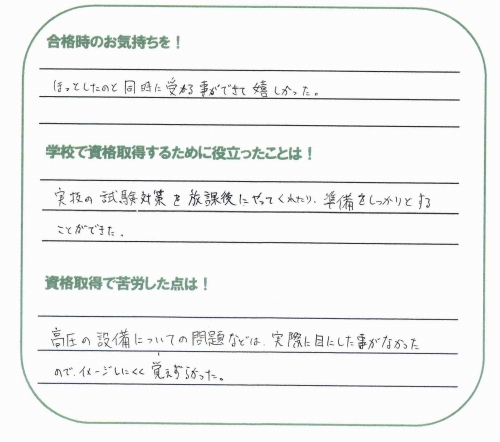 合格時のお気持ちを！
ほっとしたのと同時に受かる事ができて嬉しかった。
学校で資格取得するために役立ったことは！
実技の試験対策を放課後にやってくれたり、準備をしっかりとする
ことができた。
資格取得で苦労した点は！
高圧の設備についての問題などは、実際に目にした事がなかった
ので、イメージしにくく覚えずらかった。